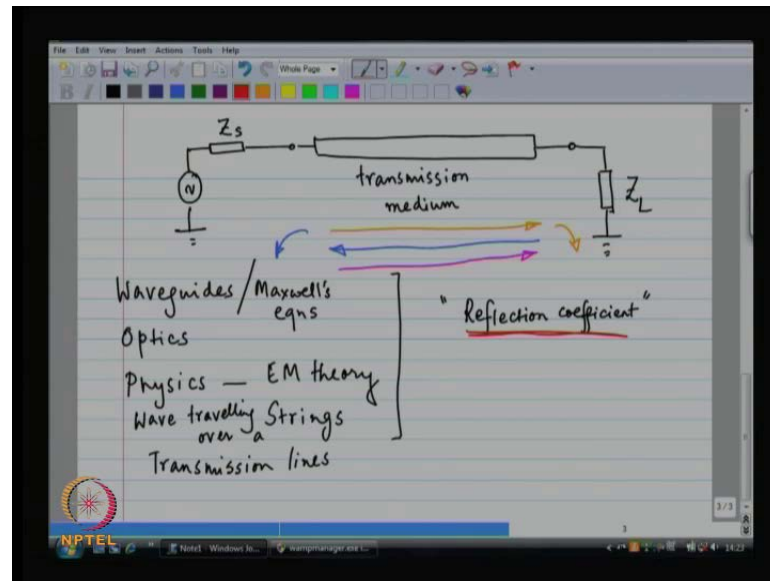 File Edit View Insert Actions Tools Help
Whole Page
B I
Zs
ZL
transmission
medium
Waveguides / Maxwell's
eqns
Optics
Physics — EM theory
Wave travelling Strings
over a
Transmission lines
"Reflection coefficient"
3/3
3
NPTEL
Note1 - Windows Jo...
wampmanager.exe
14:27